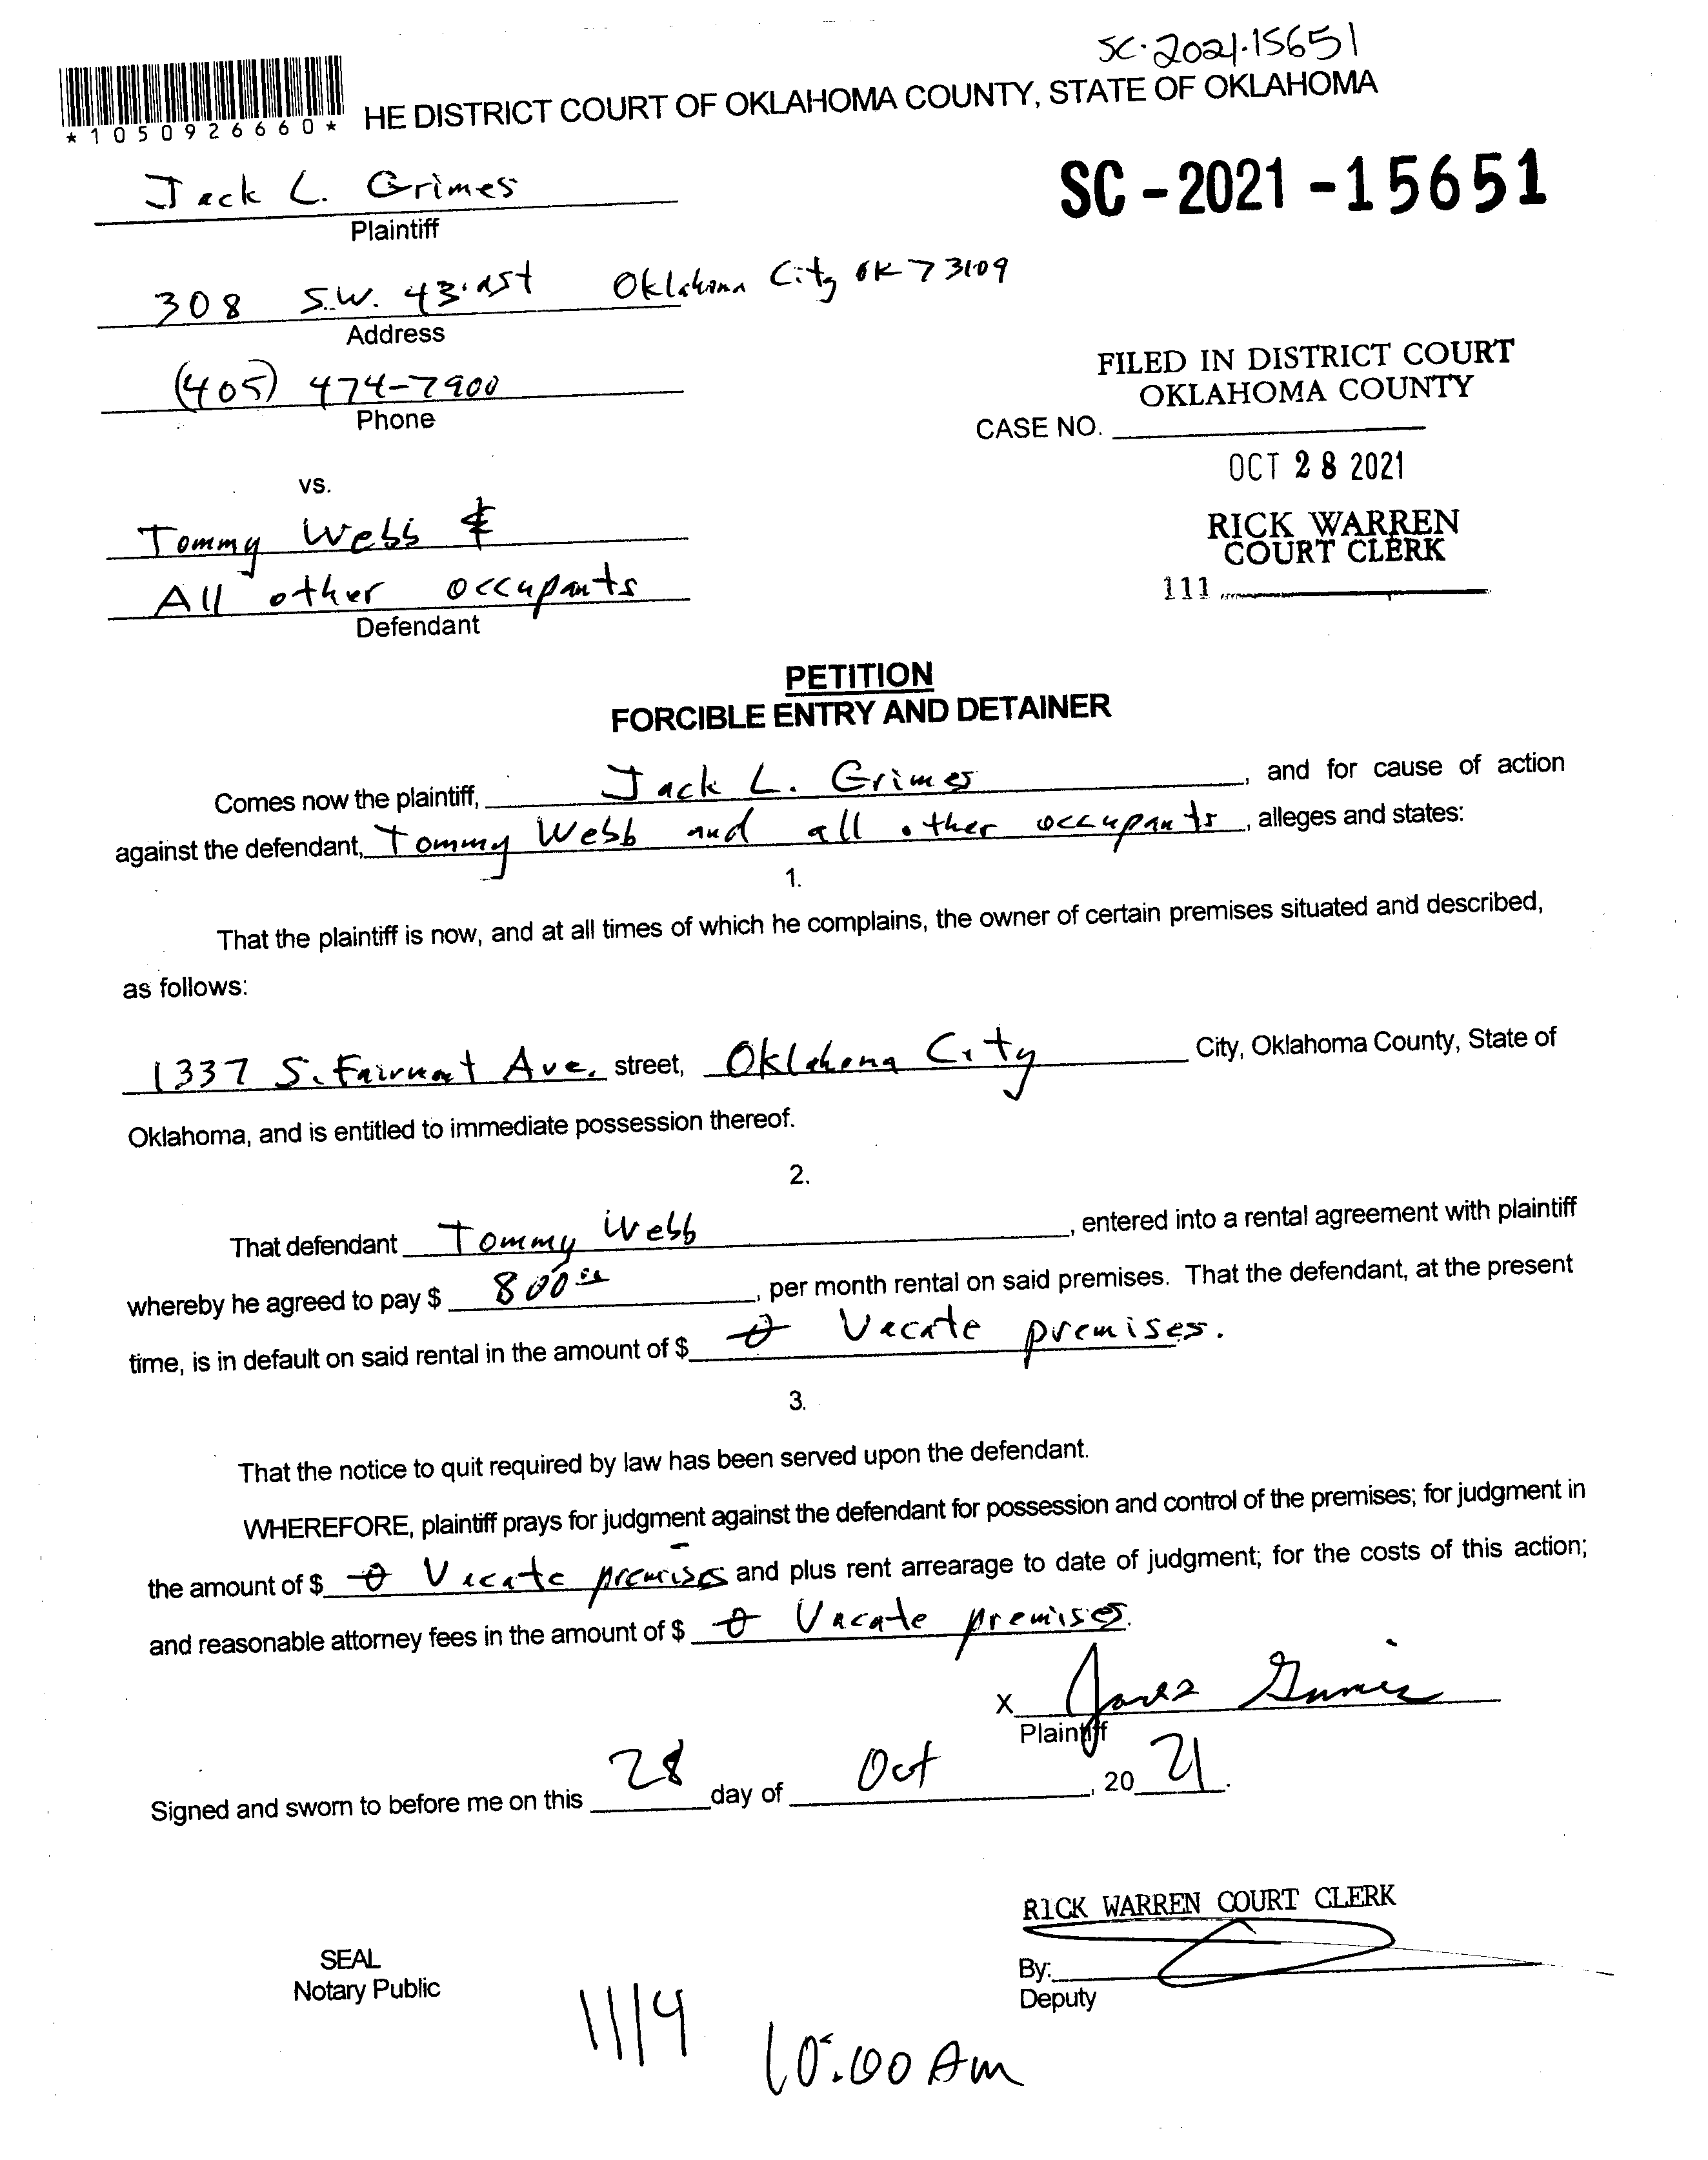 SC-2021-15651
*1050926660*
HE DISTRICT COURT OF OKLAHOMA COUNTY, STATE OF OKLAHOMA
Jack L. Grimes
SC-2021-15651
Plaintiff
308 S.W. 43 st Oklahoma City OK 73109
Address
FILED IN DISTRICT COURT
OKLAHOMA COUNTY
(405) 474-7900
Phone
CASE NO.
OCT 28 2021
vs.
RICK WARREN
COURT CLERK
Tommy Webb &
111
All other occupants
Defendant
PETITION
FORCIBLE ENTRY AND DETAINER
Comes now the plaintiff, Jack L. Grimes, and for cause of action
against the defendant, Tommy Webb and all other occupants, alleges and states:
1.
That the plaintiff is now, and at all times of which he complains, the owner of certain premises situated and described,
as follows:
1337 S. Fairmont Ave. street, Oklahoma City City, Oklahoma County, State of
Oklahoma, and is entitled to immediate possession thereof.
2.
That defendant Tommy Webb, entered into a rental agreement with plaintiff
whereby he agreed to pay $ 800.00, per month rental on said premises. That the defendant, at the present
time, is in default on said rental in the amount of $ 0 Vacate premises.
3.
That the notice to quit required by law has been served upon the defendant.
WHEREFORE, plaintiff prays for judgment against the defendant for possession and control of the premises; for judgment in
the amount of $ 0 Vacate premises and plus rent arrearage to date of judgment; for the costs of this action;
and reasonable attorney fees in the amount of $ 0 Vacate premises.
X
Plaintiff
Signed and sworn to before me on this 28 day of Oct, 2021.
RICK WARREN COURT CLERK
SEAL
Notary Public
By:
Deputy
11/4
10:00 Am